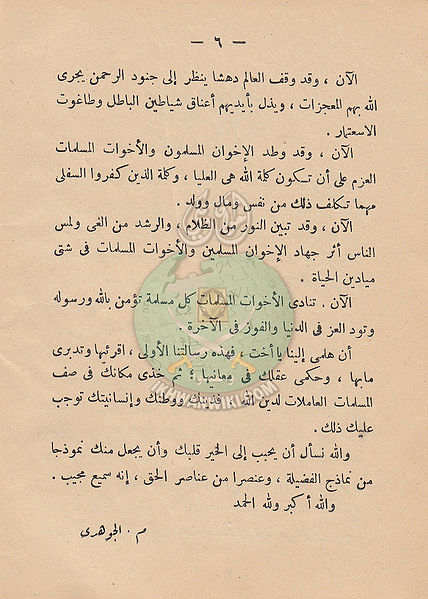 — ٦ —
الآن ، وقد وقف العالم دهشا ينظر إلى جنود الرحمن يجرى
الله بهم المعجزات ، ويذل بأيديهم أعناق شياطين الباطل وطاغوت
الاستعمار .
الآن ، وقد وطد الإخوان المسلمون والأخوات المسلمات
العزم على أن تكون كلمة الله هى العليا ، وكلمة الذين كفروا السفلى
مهما تكلف ذلك من نفس ومال وولد .
الآن ، وقد تبين النور من الظلام ، والرشد من الغى ولمس
الناس أثر جهاد الإخوان المسلمين والأخوات المسلمات فى شتى
ميادين الحياة .
الآن . تنادى الأخوات المسلمات كل مسلمة تؤمن بالله ورسوله
وتود العز فى الدنيا والفوز فى الآخرة .
أن هلمى إلينا يا أخت ، فهذه رسالتنا الأولى ، اقرئيها وتدبرى
مابها ، وحكمى عقلك فى معانيها ، ثم خذى مكانك فى صف
المسلمات العاملات لدين الله فدينك ووطنك وإنسانيتك توجب
عليك ذلك .
والله نسأل أن يحبب إلى الخير قلبك وأن يجعل منك نموذجا
من نماذج الفضيلة ، وعنصرا من عناصر الحق ، إنه سميع مجيب .
والله أكبر ولله الحمد
م . الجوهرى
IKHWANWIKI.COM